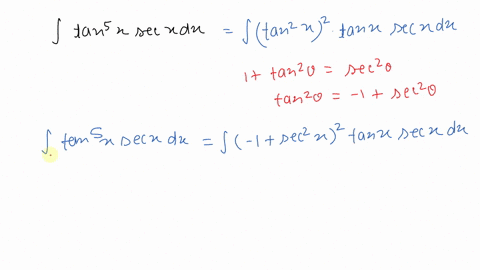 ∫ tan⁵x sec x dx = ∫(tan²x)² · tan x sec x dx
1 + tan²θ = sec²θ
tan²θ = -1 + sec²θ
∫ tan⁵x sec x dx = ∫(-1 + sec²x)² tan x sec x dx